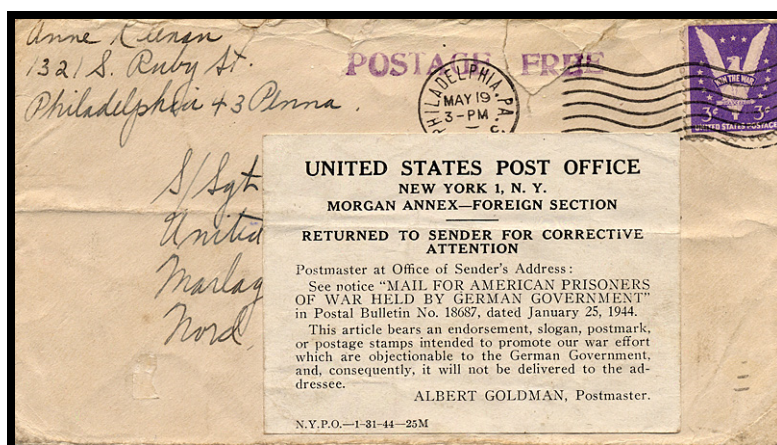 Anne Kienan
1321 S. Ruby St.
Philadelphia 43 Penna.
POSTAGE FREE
PHILADELPHIA, PA.
MAY 19
3-PM
WIN THE WAR
3¢ 3¢
UNITED STATES POSTAGE
S/Sgt
United
Marlag
Nord
UNITED STATES POST OFFICE
NEW YORK 1, N. Y.
MORGAN ANNEX—FOREIGN SECTION
RETURNED TO SENDER FOR CORRECTIVE
ATTENTION
Postmaster at Office of Sender's Address:
See notice "MAIL FOR AMERICAN PRISONERS
OF WAR HELD BY GERMAN GOVERNMENT"
in Postal Bulletin No. 18687, dated January 25, 1944.
This article bears an endorsement, slogan, postmark,
or postage stamps intended to promote our war effort
which are objectionable to the German Government,
and, consequently, it will not be delivered to the ad-
dressee.
ALBERT GOLDMAN, Postmaster.
N.Y.P.O.—1-31-44—25M